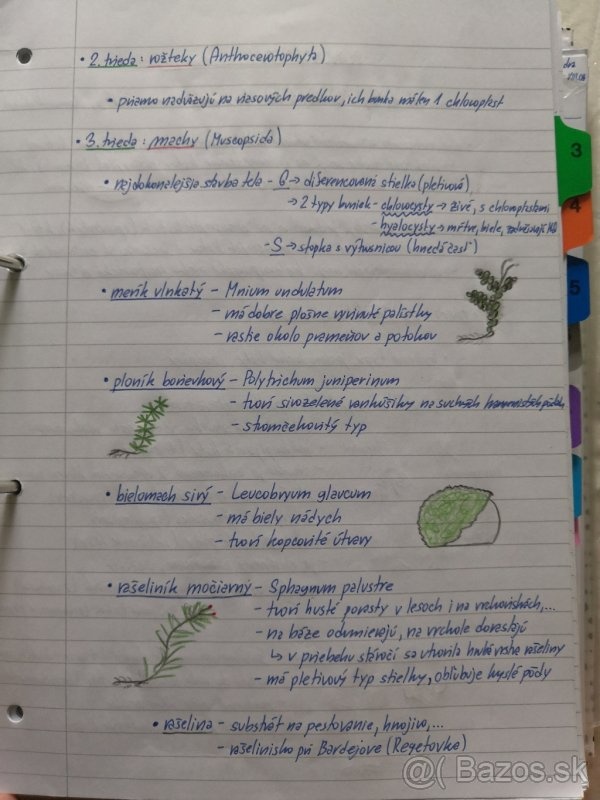 • 2. trieda: rožteky (Anthocerotophyta)
• priamo nadväzujú na riasových predkov, ich bunka má len 1 chloroplast
• 3. trieda: machy (Muscopsida)
• najdokonalejšia stavba tela - G → diferencovaná stielka (pletivová)
→ 2 typy buniek - chlorocysty → živé, s chloroplastami
- hyalocysty → mŕtve, biele, zadržiavajú
- S → stopka s výtrusnicou (hnedá časť)
• merík vlnkatý - Mnium undulatum
- má dobre plošne vyvinuté palístky
- rastie okolo prameňov a potokov
• ploník borievkový - Polytrichum juniperinum
- tvorí sivozelené vankúšiky na suchých
- stromčekovitý typ
• bielomach sivý - Leucobryum glaucum
- má biely nádych
- tvorí kopcovité útvary
• rašeliník močiarny - Sphagnum palustre
- tvorí husté porasty v lesoch i na vrchoviskách,...
- na báze odumierajú, na vrchole dorastajú
↳ v priebehu stáročí sa utvorila hrubá vrstva rašeliny
- má pletivový typ stielky, obľubuje kyslé pôdy
• rašelina - substrát na pestovanie, hnojivo,...
- rašelinisko pri Bardejove (Regetovka)
3
4
5
@( Bazos.sk